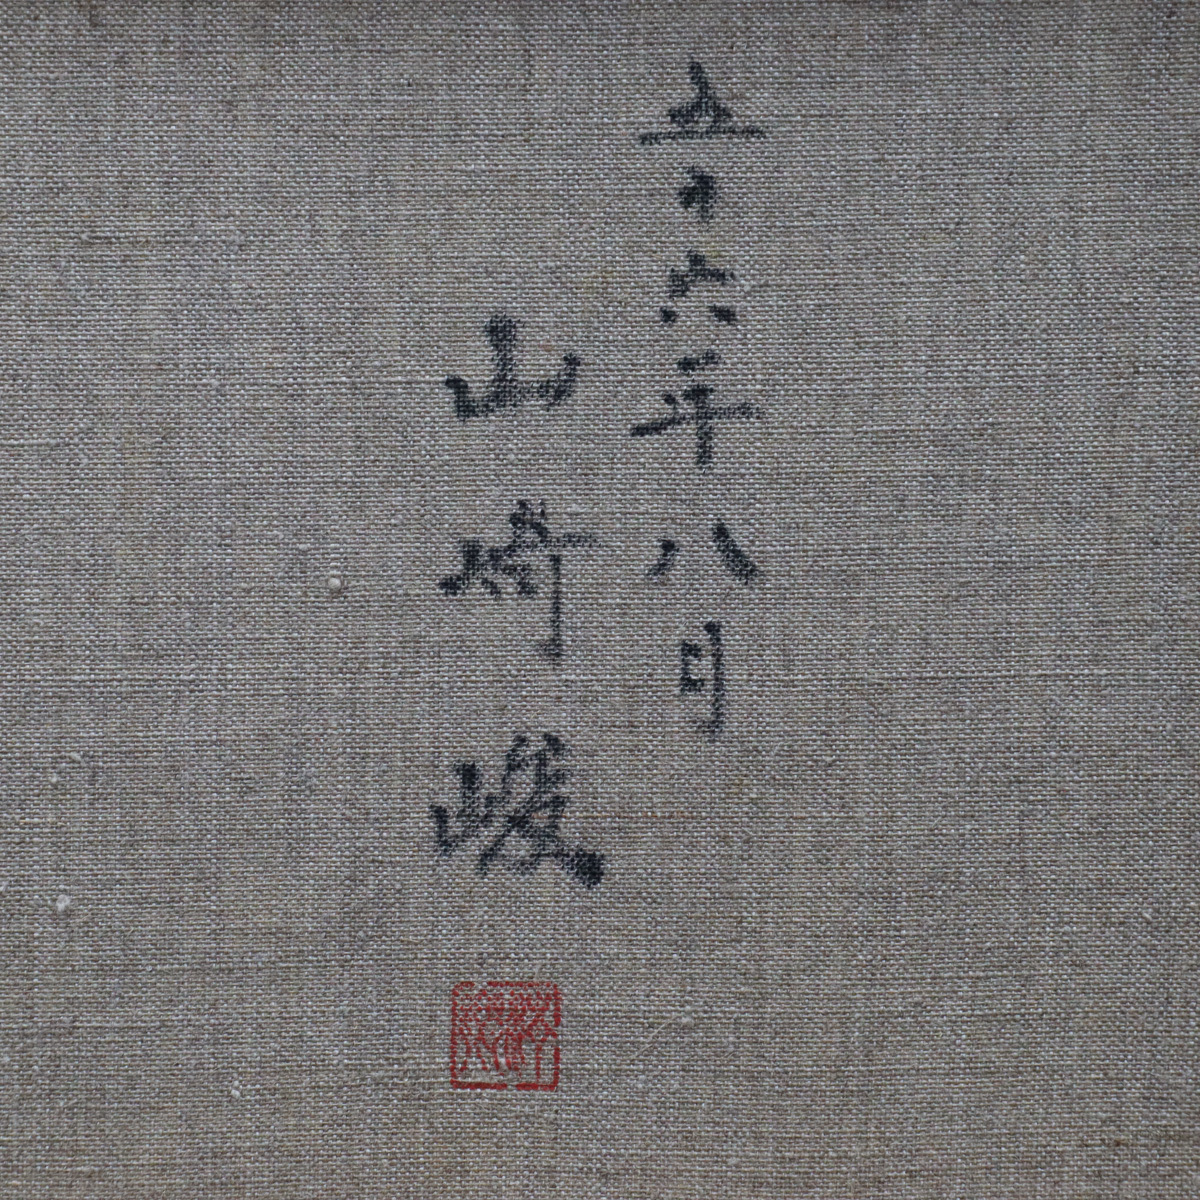 五十六年八月
山崎峻